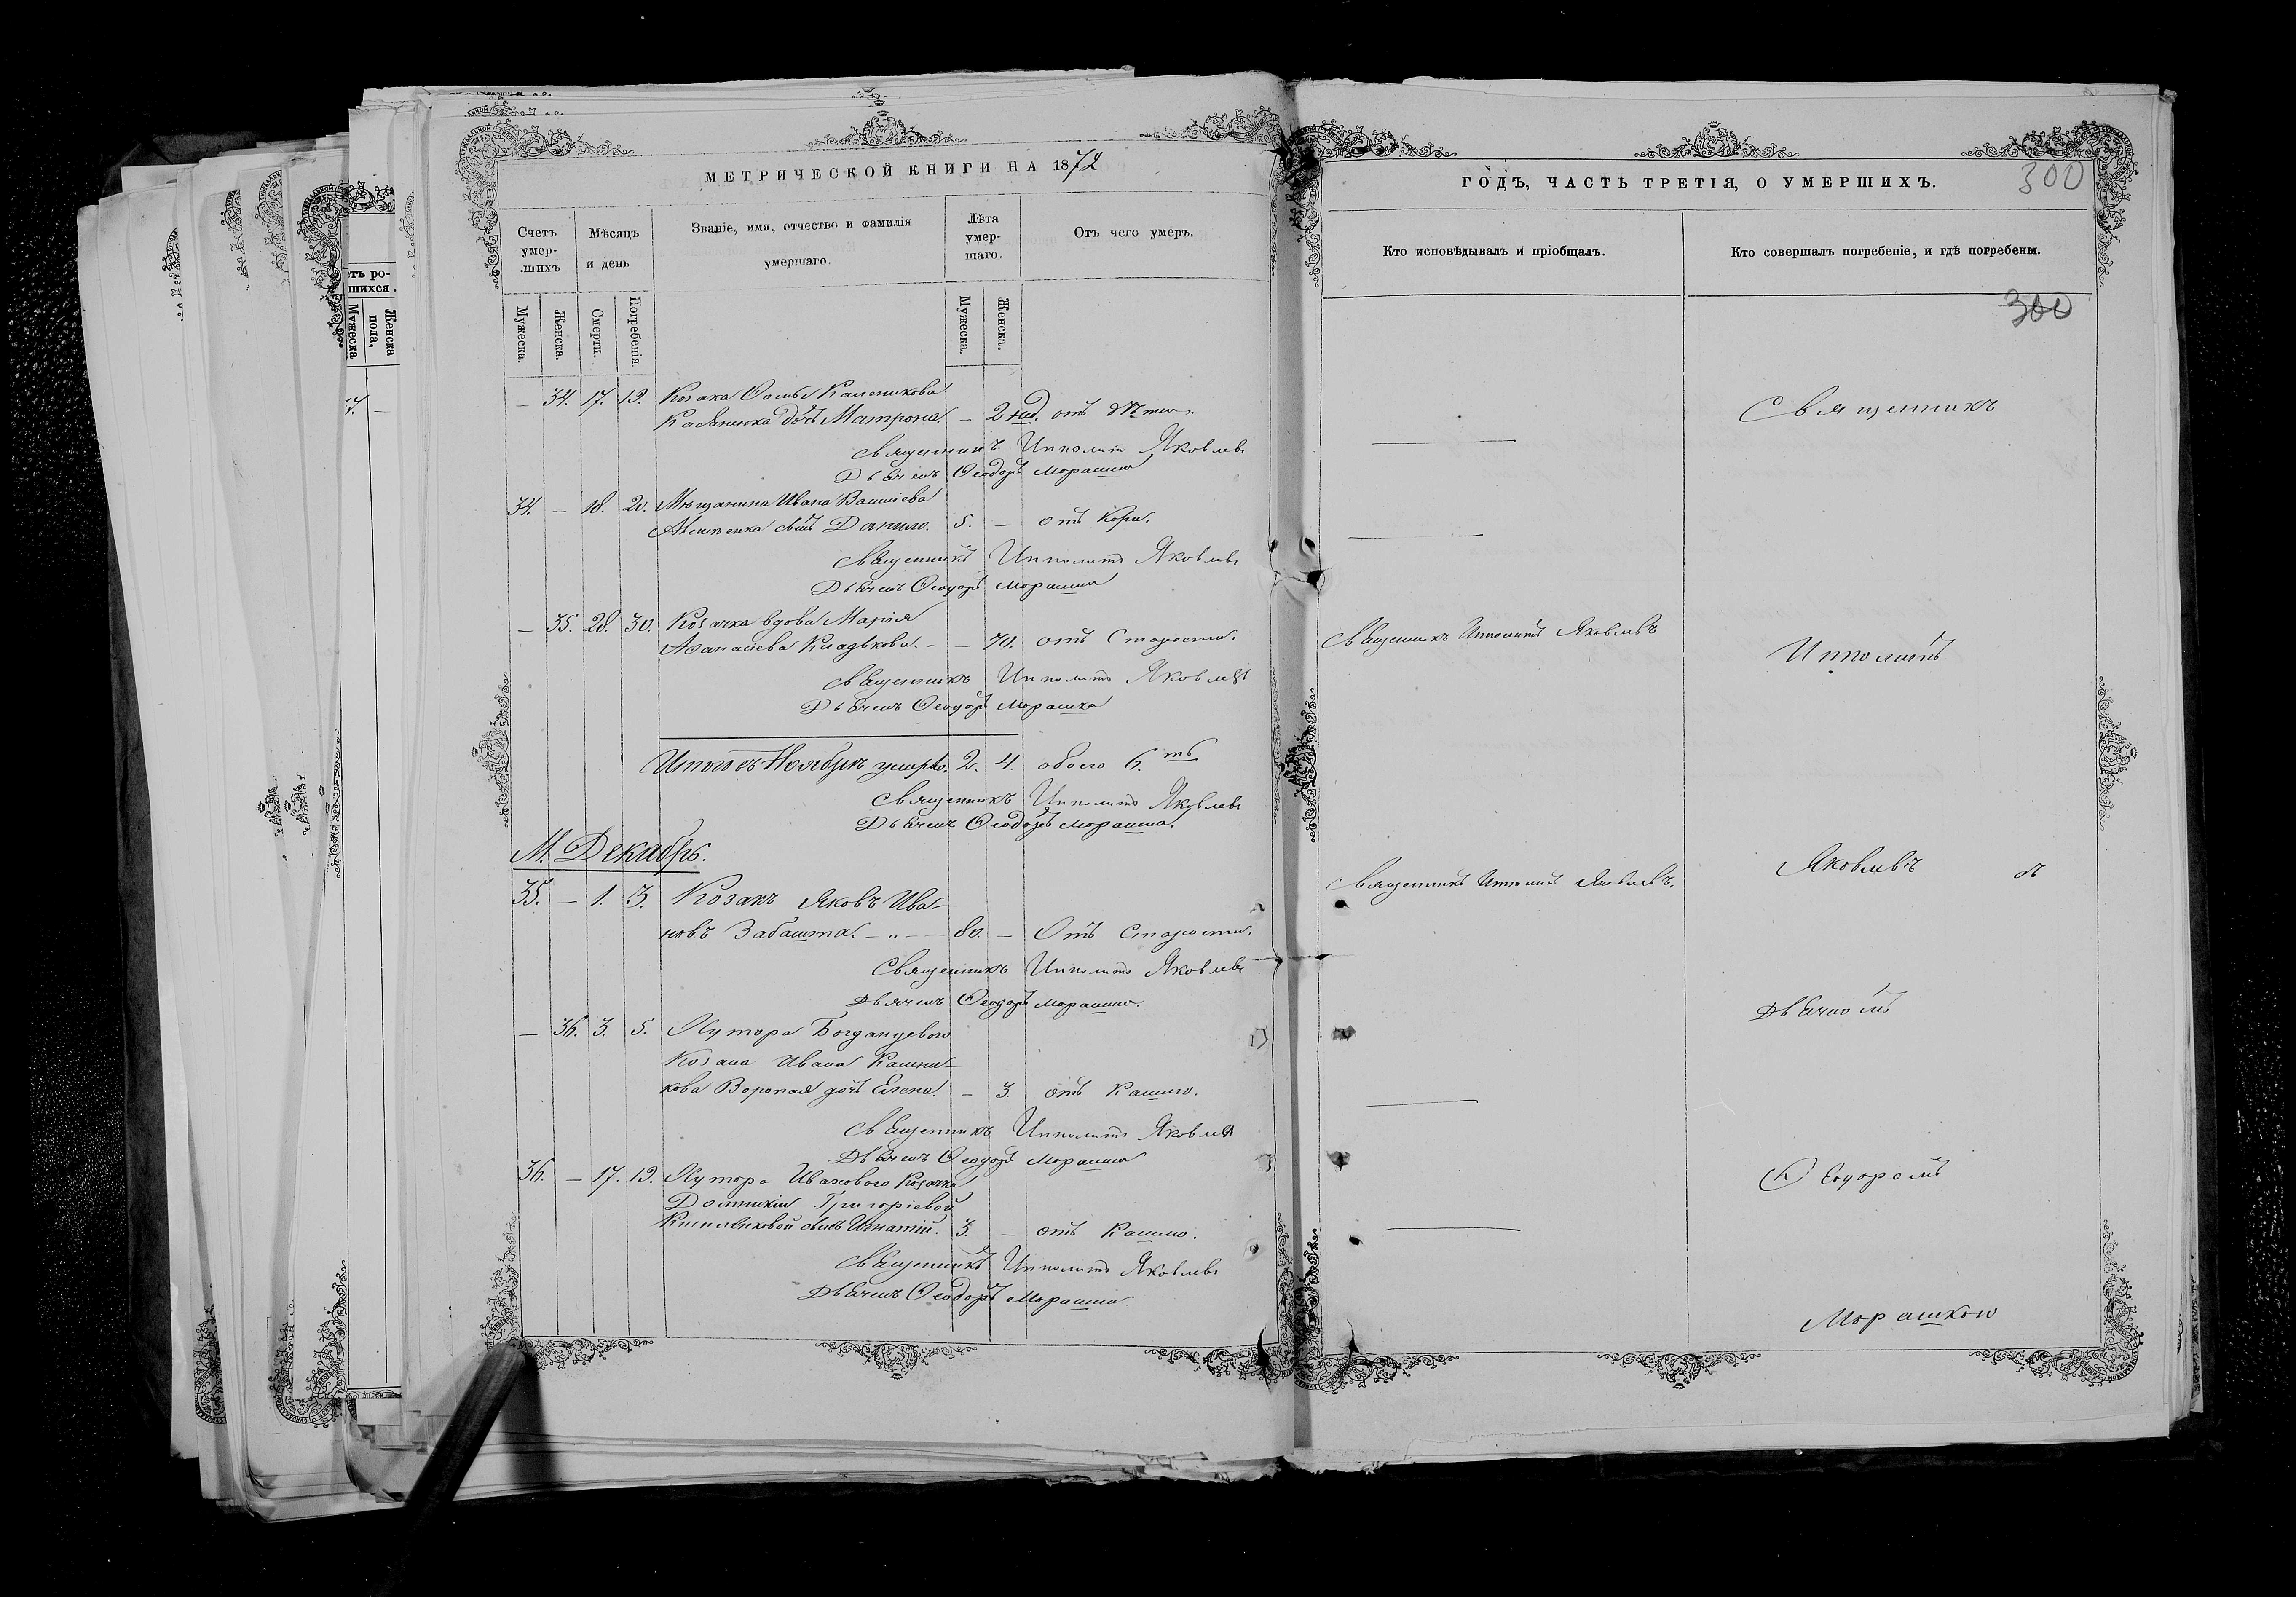 МЕТРИЧЕСКОЙ КНИГИ НА 1872
Счетъ умер-шихъ
Мѣсяцъ и день
Званіе, имя, отчество и фамилія умершаго.
Лѣта умер-шаго.
Отъ чего умеръ.
Мужеска.
Женска.
Смерти.
Погребенія.
Мужеска.
Женска.
— 34. 17. 19. Козака Ѳомы Каленикова
дочь Матрона. — 2 нед. отъ
Священникъ Ипполитъ Яковлевъ
Дьячекъ Ѳеодоръ Морашко
34. — 18. 20. Мѣщанина Ивана
сынъ Данило. 5. — отъ Кори.
Священникъ Ипполитъ Яковлевъ
Дьячекъ Ѳеодоръ Морашко
— 35. 28. 30. Козачка вдова Марія
Аѳанасіева Кладькова. — — 70. отъ Старости.
Священникъ Ипполитъ Яковлевъ
Дьячекъ Ѳеодоръ Морашко
Итого въ Ноябрѣ умерло. 2. 4. обоего 6.ть
Священникъ Ипполитъ Яковлевъ
Дьячекъ Ѳеодоръ Морашко.
М. Декабрь.
35. — 1. 3. Козакъ Яковъ Ива-
новъ Забашта — „ — 80. — Отъ Старости.
Священникъ Ипполитъ Яковлевъ
Дьячекъ Ѳеодоръ Морашко.
— 36. 3. 5. Хутора Богданцевого
Козака Ивана Калени-
кова Воропая дочь Елена. — 3. отъ Кашлю.
Священникъ Ипполитъ Яковлевъ
Дьячекъ Ѳеодоръ Морашко
36. — 17. 19. Хутора Ивахового Козачки
Домникіи Григоріевой
сынъ Игнатій. 3. — отъ Кашлю.
Священникъ Ипполитъ Яковлевъ
Дьячекъ Ѳеодоръ Морашко.
ГОДЪ, ЧАСТЬ ТРЕТІЯ, О УМЕРШИХЪ.
300
Кто исповѣдывалъ и пріобщалъ.
Кто совершалъ погребеніе, и гдѣ погребены.
300
Священникъ
Священникъ Ипполитъ Яковлевъ
Ипполитъ
Священникъ Ипполитъ Яковлевъ.
Яковлевъ съ
Дьячкомъ
Ѳеодоромъ
Морашкою
тъ ро-
шихся.
Мужеска
Женска
пола,